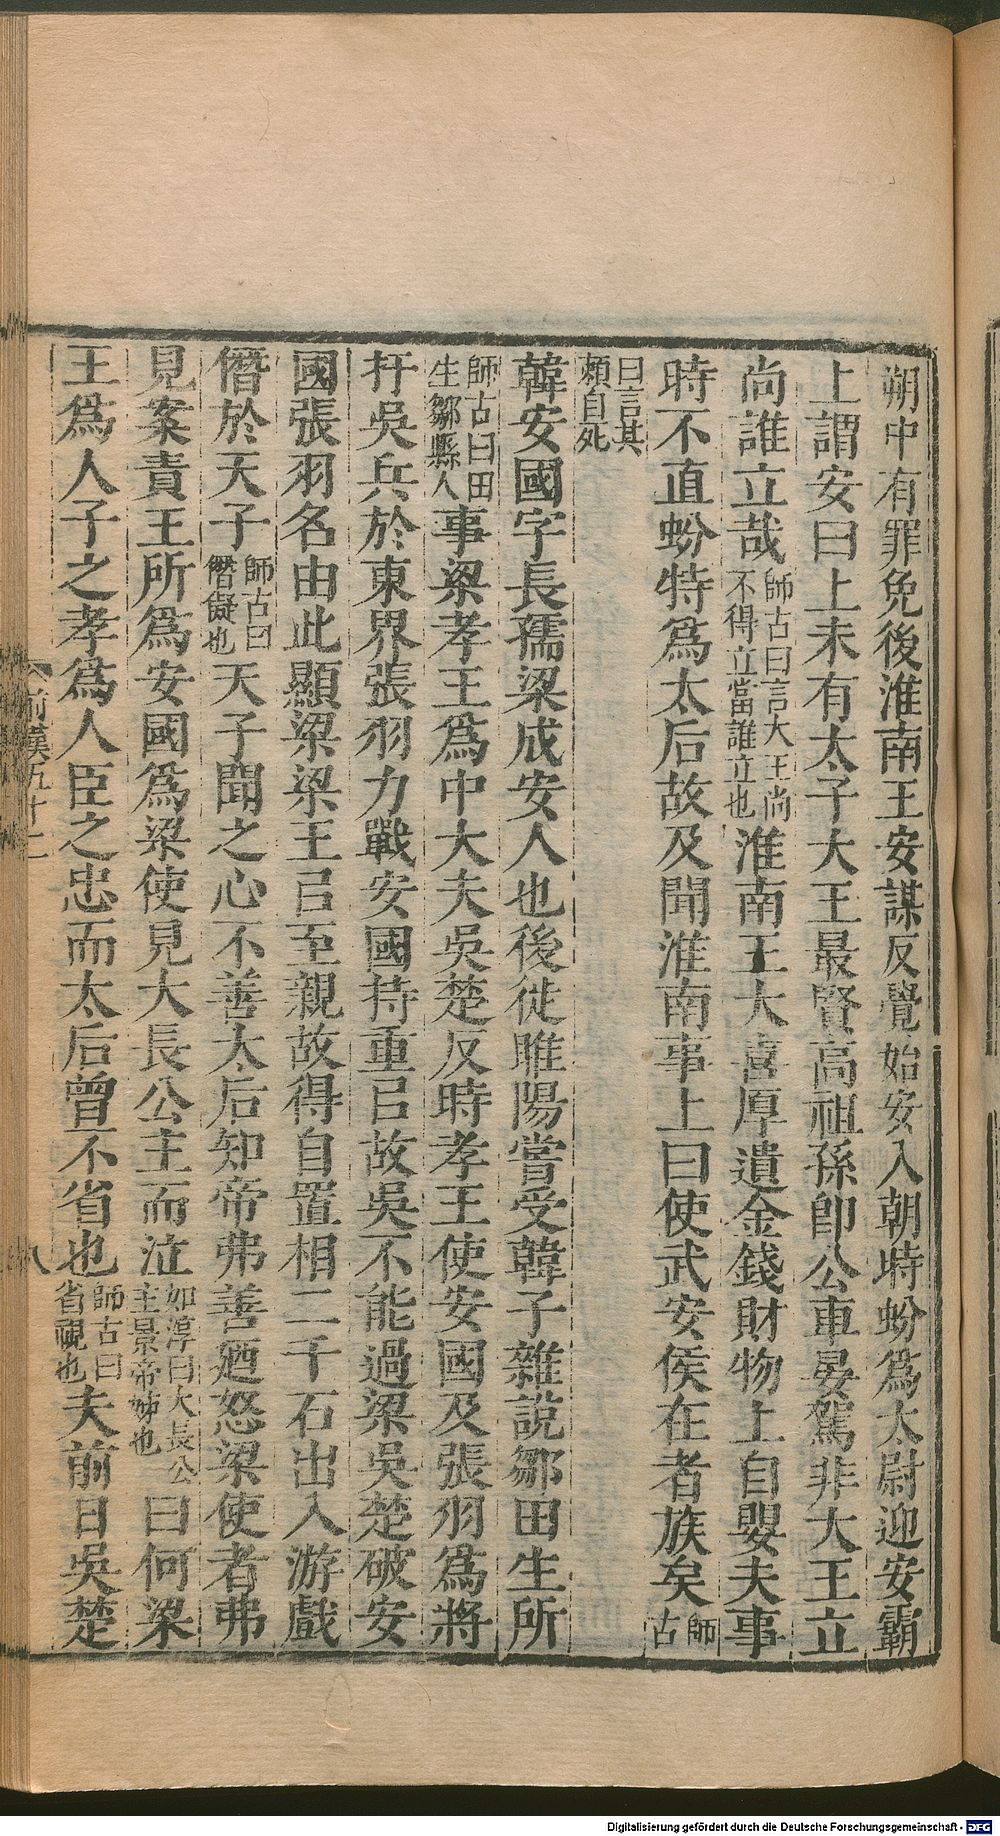 朔中有罪免後淮南王安謀反覺始安入朝時蚡爲太尉迎安霸
上謂安曰上未有太子大王最賢高祖孫卽公車晏駕非大王立
尚誰立哉師古曰言大王尚不得立當誰立也淮南王大喜厚遺金錢財物上自嬰夫事
時不直蚡特爲太后故及聞淮南事上曰使武安侯在者族矣師古
曰言其頼自死
韓安國字長孺梁成安人也後徙睢陽嘗受韓子雜說鄒田生所
師古曰田生鄒縣人事梁孝王爲中大夫吳楚反時孝王使安國及張羽爲將
扞吳兵於東界張羽力戰安國持重㠯故吳不能過梁吳楚破安
國張羽名由此顯梁梁王㠯至親故得自置相二千石出入游戲
僭於天子師古曰僭儗也天子聞之心不善太后知帝弗善迺怒梁使者弗
見案責王所爲安國爲梁使見大長公主而泣如淳曰大長公主景帝姊也曰何梁
王爲人子之孝爲人臣之忠而太后曾不省也師古曰省視也夫前日吳楚
前漢五十二
八
Digitalisierung gefördert durch die Deutsche Forschungsgemeinschaft - DFG